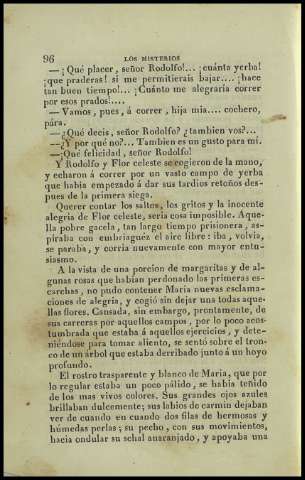 96 LOS MISTERIOS
—¡Qué placer, señor Rodolfo!... ¡cuánta yerba!
¡que praderas! si me permitierais bajar.... ¡hace
tan buen tiempo!... ¡Cuánto me alegraria correr
por esos prados!....
—Vamos, pues, á correr, hija mia.... cochero,
pára.
—¿Qué decis, señor Rodolfo? ¿tambien vos?...
—¿Y por qué no?... Tambien es un gusto para mi.
—¡Qué felicidad, señor Rodolfo!
Y Rodolfo y Flor celeste se cogieron de la mano,
y echaron á correr por un vasto campo de yerba
que habia empezado á dar sus tardios retoños des-
pues de la primera siega.
Querer contar los saltos, los gritos y la inocente
alegria de Flor celeste, seria cosa imposible. Aque-
lla pobre gacela, tan largo tiempo prisionera, as-
piraba con embriaguéz el aire libre: iba, volvia,
se paraba, y corria nuevamente con mayor entu-
siasmo.
A la vista de una porcion de margaritas y de al-
gunas rosas que habian perdonado las primeras es-
carchas, no pudo contener Maria nuevas esclama-
ciones de alegría, y cogió sin dejar una todas aque-
llas flores. Cansada, sin embargo, prontamente, de
sus carreras por aquellos campos, por lo poco acos-
tumbrada que estaba á aquellos ejercicios, y dete-
niéndose para tomar aliento, se sentó sobre el tron-
co de un árbol que estaba derribado junto á un hoyo
profundo.
El rostro trasparente y blanco de Maria, que por
lo regular estaba un poco pálido, se habia teñido
de los mas vivos colores. Sus grandes ojos azules
brillaban dulcemente; sus labios de carmin dejaban
ver de cuando en cuando dos filas de hermosas y
húmedas perlas; su pecho, con sus movimientos,
hacia ondular su schal anaranjado, y apoyaba una